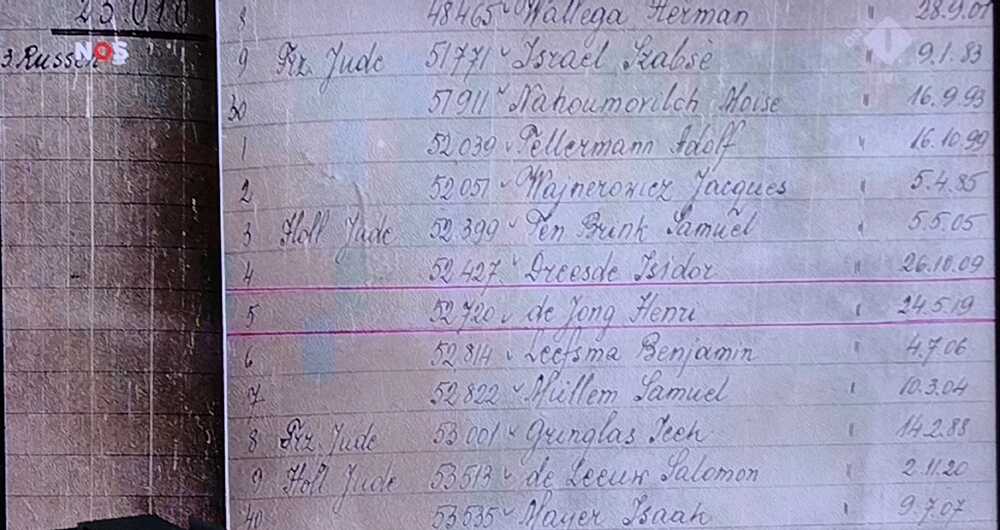 23.010
3. Russen
NOS
8 48465 Wallega Herman " 28.9.01
9 Frz. Jude 51771 Israel Szabsè " 9.1.83
30 51911 Nahoumovitch Moise " 16.9.93
1 52039 Fellermann Adolf " 16.10.99
2 52051 Wajnerowicz Jacques " 5.4.85
3 Holl Jude 52399 Ten Brink Samuel " 5.5.05
4 52427 Dreesde Isidor " 26.10.09
5 52720 de Jong Henri " 24.5.19
6 52814 Leefsma Benjamin " 4.7.06
7 52822 Müllem Samuel " 10.3.04
8 Frz. Jude 53001 Gringlas Icek " 14.2.88
9 Holl Jude 53513 de Leeuw Salomon " 2.11.20
40 53535 Mayer Isaak " 9.7.07